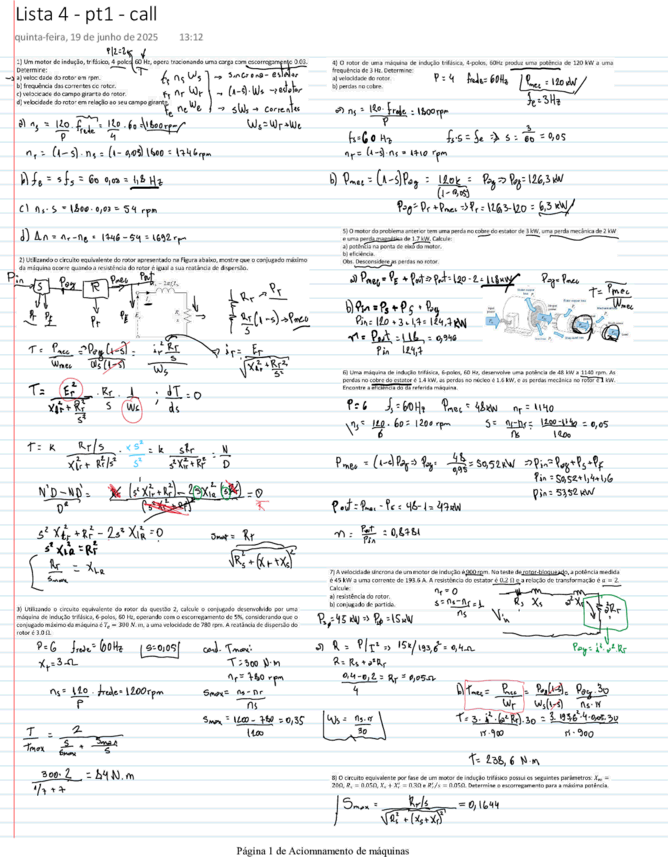 Lista 4 - pt1 - call
quinta-feira, 19 de junho de 2025 13:12
P/2=2
1) Um motor de indução, trifásico, 4 polos, 60 Hz, opera tracionando uma carga com escorregamento 0.03.
Determine:
a) velocidade do rotor em rpm.
b) frequência das correntes do rotor.
c) velocidade do campo girante do rotor.
d) velocidade do rotor em relação ao seu campo girante.
fs ns Ws → síncrona - estator
fr nr Wr → (1-s)·Ws → rotor
fe ne We → sWs → correntes
Ws = Wr + We
a) ns = 120/P · frede = 120/4 · 60 = 1800 rpm
nr = (1-s)·ns = (1-0,03) 1800 = 1746 rpm
b) fe = s fs = 60 0,03 = 1,8 Hz
c) ns·s = 1800·0,03 = 54 rpm
d) Δn = nr - ne = 1746 - 54 = 1692 rpm
2) Utilizando o circuito equivalente do rotor apresentado na Figura abaixo, mostre que o conjugado
máximo da máquina ocorre quando a resistência do rotor é igual a sua reatância de dispersão.
Pin Pag Pmec Pout
S R
Pr Pf
Rr → Pr
Rr/s (1-s) → Pmec
T = Pmec/Wmec = Pag(1-s)/Ws(1-s) = ir² Rr/s / Ws
T = Er²/(Xlr² + Rr²/s²) · Rr/s · 1/Ws ; dT/ds = 0
T = k Rr/s / (Xlr² + Rr²/s²) · s²/s² = k sRr/(s²Xlr² + Rr²) = N/D
N'D - ND'/D²
s² Xlr² + Rr² - 2s² Xlr² = 0
s² Xlr² = Rr²
Rr/smax = Xlr
smax = Rr/√(Rs² + (Xr + Xs)²)
3) Utilizando o circuito equivalente do rotor da questão 2, calcule o conjugado desenvolvido por uma
máquina de indução trifásica, 6-polos, 60 Hz, operando com o escorregamento de 5%, considerando que o
conjugado máximo da máquina é Tₑ = 300 N.m, a uma velocidade de 780 rpm. A reatância de dispersão do
rotor é 3.0 Ω.
P=6 frede = 60Hz s=0,05
xr = 3Ω
ns = 120/P · frede = 1200 rpm
cond. Tmax:
T = 300 N·m
nr = 780 rpm
smax = ns-nr/ns
smax = 1200 - 780/1200 = 0,35
T/Tmax = 2/(s/smax + smax/s)
300·2/(1/7 + 7) = 84 N.m
4) O rotor de uma máquina de indução trifásica, 4-polos, 60Hz produz uma potência de 120 kW a uma
frequência de 3 Hz. Determine:
a) velocidade do rotor.
b) perdas no cobre.
P = 4 frede = 60Hz Pmec = 120 kW
fe = 3Hz
a) ns = 120·frede/P = 1800 rpm
fs = 60 Hz fs·s = fe => s = 3/60 = 0,05
nr = (1-s)·ns = 1710 rpm
b) Pmec = (1-s)Pag = 120k/(1-0,05) = Pag => Pag = 126,3 kW
Pag = Pr + Pmec => Pr = 126,3 - 120 = 6,3 kW
5) O motor do problema anterior tem uma perda no cobre do estator de 3 kW, uma perda mecânica de 2 kW
e uma perda magnética de 1.7 kW. Calcule:
a) potência na ponta de eixo do motor.
b) eficiência.
Obs. Desconsidere as perdas no rotor.
Pag = Pmec
T = Pmec/Wmec
a) Pmec = Pf + Pout => Pout = 120 - 2 = 118 kW
b) Pin = Ps + Pf + Pag
Pin = 120 + 3 + 1,7 = 124,7 kW
n = Pout/Pin = 118/124,7 = 0,946
6) Uma máquina de indução trifásica, 6-polos, 60 Hz, desenvolve uma potência de 48 kW a 1140 rpm. As
perdas no cobre do estator é 1.4 kW, as perdas no núcleo é 1.6 kW, e as perdas mecânica no rotor é 1 kW.
Encontre a eficiência do da referida máquina.
P=6 fs = 60Hz Pmec = 48kW nr = 1140
ns = 120/6 · 60 = 1200 rpm s = ns-nr/ns = 1200-1140/1200 = 0,05
Pmec = (1-s)Pag => Pag = 48/0,95 = 50,52 kW => Pin = Pag + Ps + Pf
Pin = 50,52 + 1,4 + 1,6
Pin = 53,52 kW
Pout = Pmec - Pf = 48 - 1 = 47 kW
n = Pout/Pin = 0,8781
7) A velocidade síncrona de um motor de indução é 900 rpm. No teste de rotor-bloqueado, a potência medida
é 45 kW a uma corrente de 193.6 A. A resistência do estator é 0.2 Ω e a relação de transformação é a = 2.
Calcule:
a) resistência do rotor.
b) conjugado de partida.
nr = 0
s = ns-nr/ns = 1
P3φ = 45 kW => Pφ = 15 kW
Rs Xs
Vin
Pag = i²·a²·Rr
a) R = P/I² => 15k/193,6² = 0,4Ω
R = Rs + a²Rr
0,4 - 0,2/4 = Rr = 0,05Ω
b) Tmec = Pmec/Wr = Pag(1-s)/Ws(1-s) = Pag·30/ns·π
Ws = ns·π/30
T = 3·i²·(a²Rr)·30/π·900 = 3·193,6²·4·0,05·30/π·900
T = 238,6 N·m
8) O circuito equivalente por fase de um motor de indução trifásico possui os seguintes parâmetros: Xₘ =
20Ω, Rₛ = 0.05Ω, Xₛ + X'ᵣ = 0.30 e R'ᵣ/s = 0.05Ω. Determine o escorregamento para a máxima potência.
Smax = Rr/s/√(Rs² + (Xs + Xr)²) = 0,1644
Página 1 de Aciomnamento de máquinas